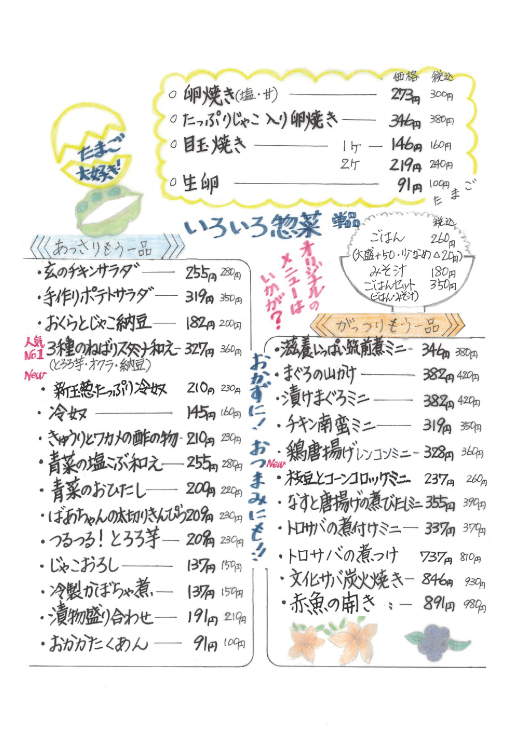 価格 税込
○ 卵焼き(塩・甘) 273円 300円
○ たっぷりじゃこ入り卵焼き 346円 380円
○ 目玉焼き 1ヶ 146円 160円
2ヶ 219円 240円
○ 生卵 91円 100円
たまご
たまご
大好き!
いろいろ惣菜 単品
税込
ごはん 260円
(大盛+50・少なめ△20円)
みそ汁 180円
ごはんセット 350円
(ごはん・みそ汁)
オリジナルの
メニューは
いかが?
あっさりもう一品
・玄のチキンサラダ 255円 280円
・手作りポテトサラダ 319円 350円
・おくらとじゃこ納豆 182円 200円
人気No.1 3種のねばりスタミナ和え 327円 360円
(とろろ芋・オクラ・納豆)
New
・新玉葱たっぷり冷奴 210円 230円
・冷奴 145円 160円
・きゅうりとワカメの酢の物 210円 230円
・青菜の塩こぶ和え 255円 280円
・青菜のおひたし 200円 220円
・ばあちゃんの太切りきんぴら 209円 230円
・つるつる!とろろ芋 209円 230円
・じゃこおろし 137円 150円
・冷製かぼちゃ煮 137円 150円
・漬物盛り合わせ 191円 210円
・おかかたくあん 91円 100円
おかずに!おつまみにも!!
がっつりもう一品
・滋養いっぱい筑前煮ミニ 346円 380円
・まぐろの山かけ 382円 420円
・漬けまぐろミニ 382円 420円
・チキン南蛮ミニ 319円 350円
・鶏唐揚げレンコンミニ 328円 360円
New
・枝豆とコーンコロッケミニ 237円 260円
・なすと唐揚げの煮びたしミニ 355円 390円
・トロサバの煮付けミニ 337円 370円
・トロサバの煮つけ 737円 810円
・文化サバ炭火焼き 846円 930円
・赤魚の開き 891円 980円